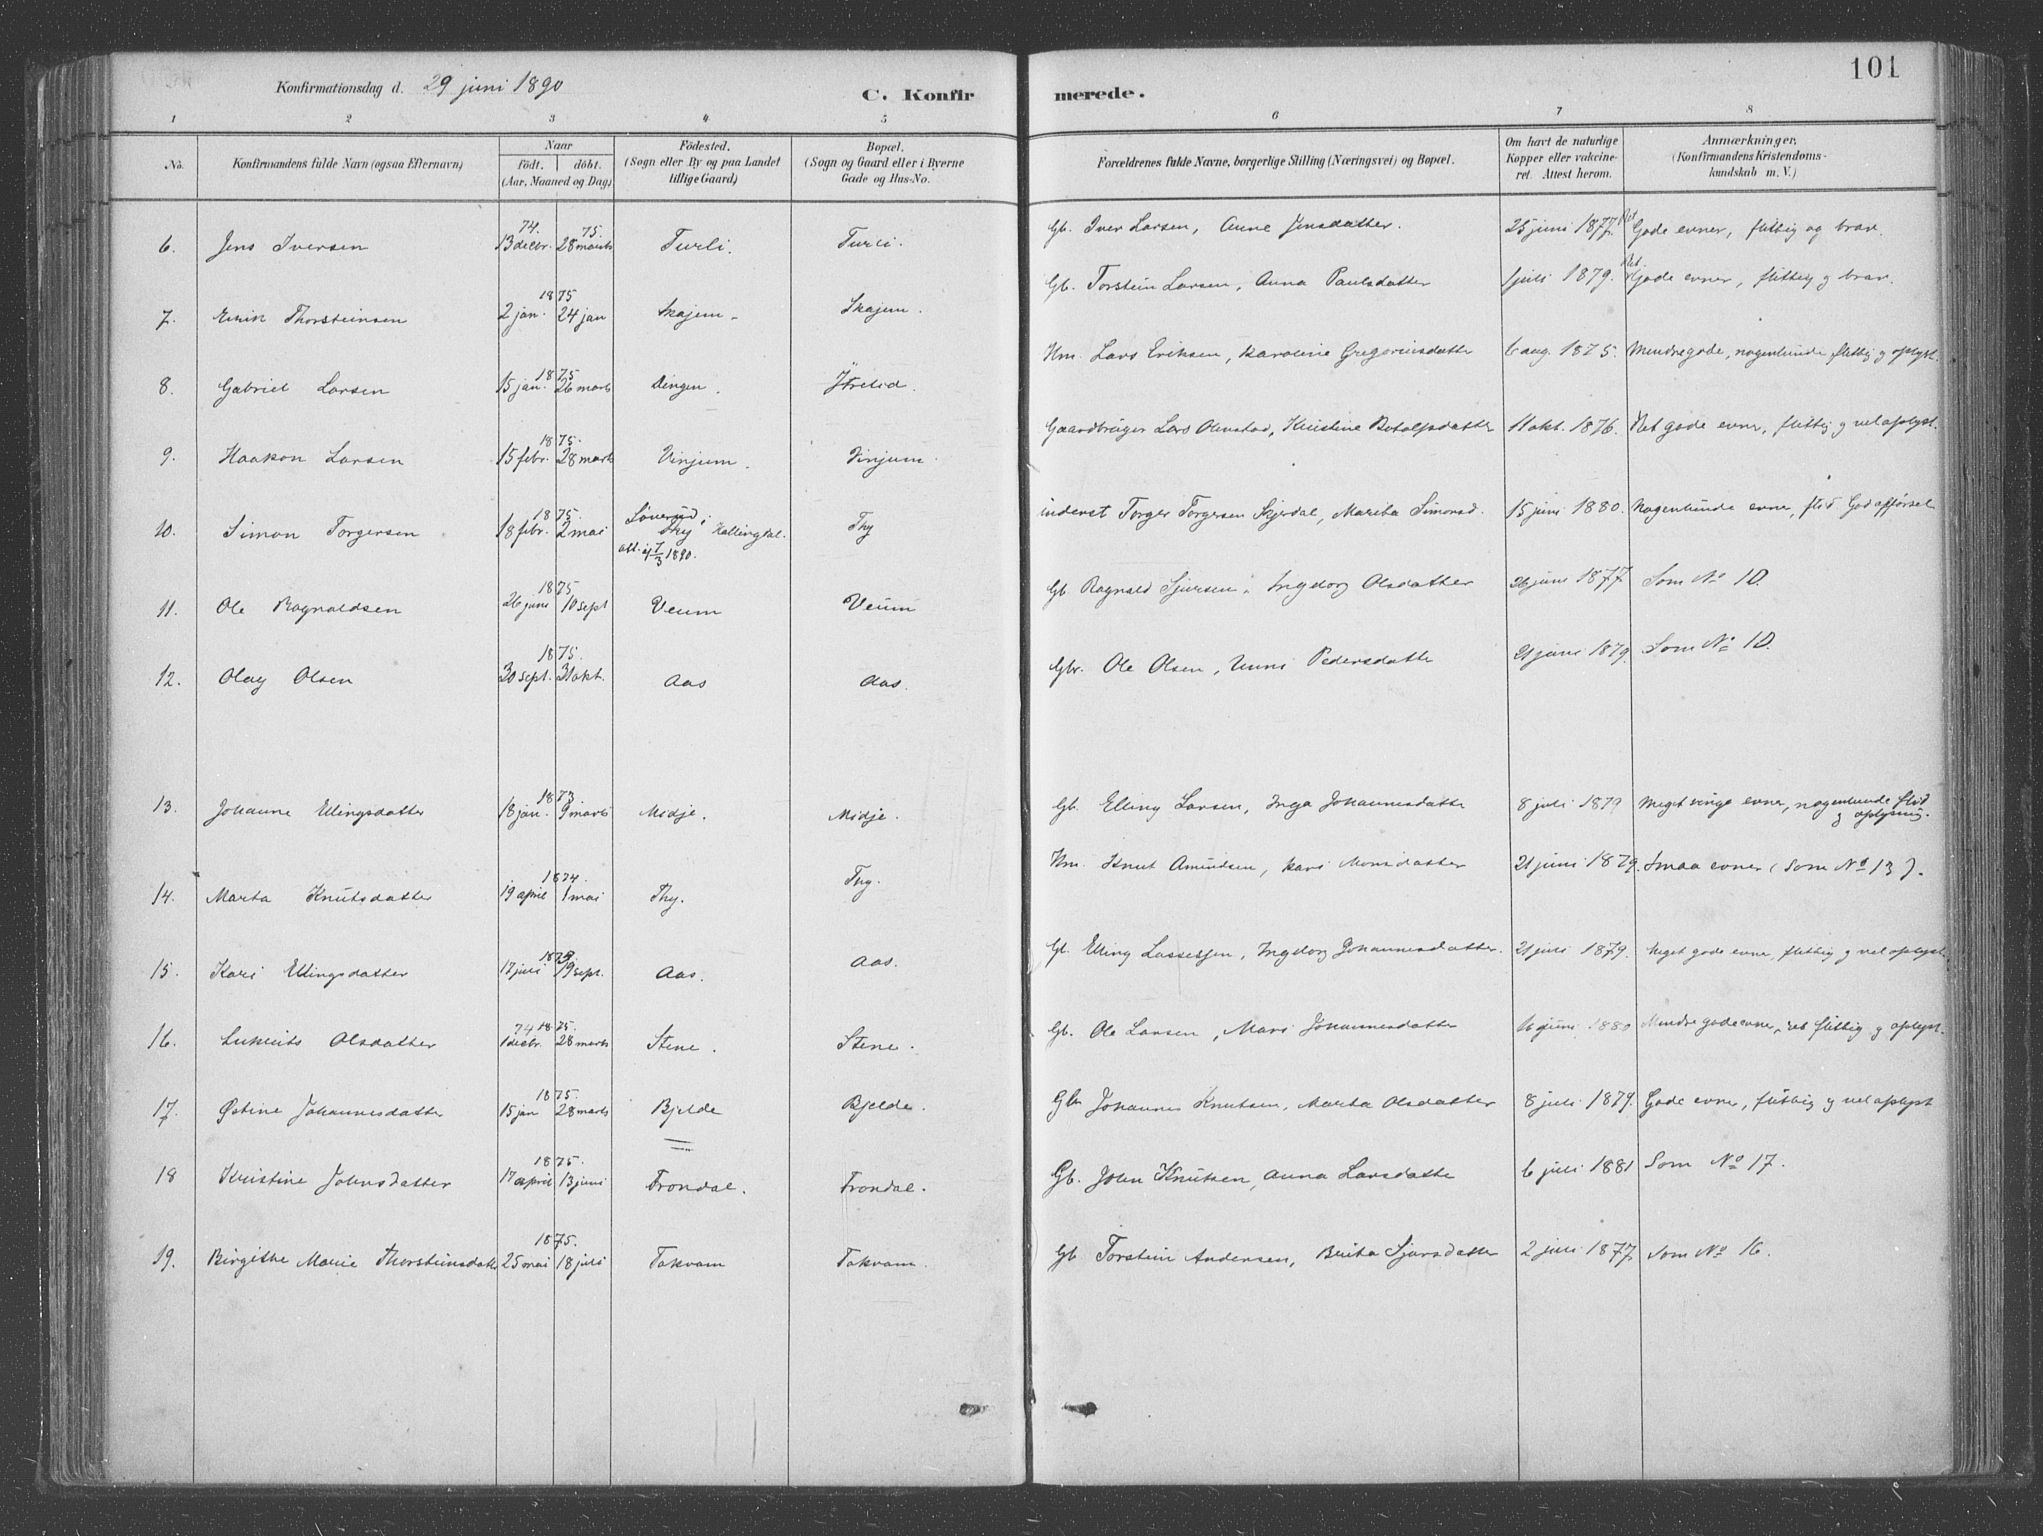 101
Konfirmationsdag d. 29 juni 1890
C. Konfirmerede.
1 2 3 4 5 6 7 8
No. Konfirmandens fulde Navn (ogsaa Efternavn) Naar födt. döbt. (Aar, Maaned og Dag) Födested. (Sogn eller By og paa Landet tillige Gaard) Bopæl. (Sogn og Gaard eller i Byerne Gade og Hus-No. Forældrenes fulde Navne, borgerlige Stilling (Næringsvei) og Bopæl. Om havt de naturlige Kopper eller vakcineret. Attest herom. Anmærkninger, (Konfirmandens Kristendomskundskab m. V.)
6. Jens Iversen 74. 13 decbr. 75. 28 marts Turli. Turli. Gb. Iver Larsen, Anne Jensdatter. 25 juni 1877. Ret Gode evner, flittig og brav.
7. Thorsteinsen 1875 2 jan. 24 jan Skajem. Skajem. Gb. Torstein Larsen, Anna Paulsdatter 1 juli 1879. Ret Gode evner, flittig g brav.
8. Gabriel Larsen 1875 15 jan. 26 marts Dingen. Hm. Lars Eriksen, Karoline Gregoriusdatter 6 aug. 1875. Mindre gode, nogenlunde flittig g oplyst.
9. Haakon Larsen 1875. 15 febr. 28 marts Vinjum. Vinjum. Gaardbruger Lars Olenstad, Kristine Botolfsdatter 11 okt. 1876. Ret gode evner, flittig g vel oplyst.
10. Simon Torgersen 1875. 18 febr. 2 mai Thy Hallingdal. att. af 7/3 1890. Thy inderst Torger Torgersen Skjerdal, Marita Simonsd. 15 juni 1880. Nogenlunde evner, flid God opförsel
11. Ole Ragnaldsen 1875 26 juni 10 sept Veum Veum Gb Ragnald Sjursen, Ingeborg Olsdatter 26 juni 1877 Som No 10.
12. Olav Olsen 1875. 30 sept. 31 okt. Aas Aas. Gbr. Ole Olsen, Unni Pedersdatter 21 juni 1879. Som No 10.
13. Johanne Ellingsdatter 1873 18 jan. 9 marts Midje. Midje. Gb. Elling Larsen, Inga Johannesdatter 8 juli 1879 Meget ringe evner, nogenlunde flid g oplysning.
14. Marta Knutsdatter 1874. 19 april 1 mai Thy. Thy. Hm. Knut Amundsen, Kari Monsdatter 21 juni 1879. Smaa evner (Som No 13).
15. Kari Ellingsdatter 17 juli 19 sept. Aas. Aas. Gb. Elling Lassesen, Ingeborg Johannesdatter. 21 juli 1879. Meget gode evner, flittig g vel oplyst.
16. Olsdatter 74 1875. 1 decbr. 28 marts Stene. Stene. Gb. Ole Larsen, Mari Johannesdatter 16 juni 1880 Mindre gode evner, ret flittig g oplyst.
17. Østine Johannesdatter 1875. 15 jan 28 marts Bjelde Bjelde. Gb. Johannes Knutsen, Marta Olsdatter 8 juli 1879. Gode evner, flittig g vel oplyst
18 Kristine Johnsdatter 1875. 17 april 13 juni Frondal. Frondal. Gb. John Knutsen, Anna Larsdatter 6 juli 1881 Som No 17.
19. Birgithe Marie Thorsteinsdatter 1875. 25 mai 18 juli Tokvam Tokvam. Gb Torstein Andersen, Brita Sjursdatter 2 juli 1877. Som No 16.